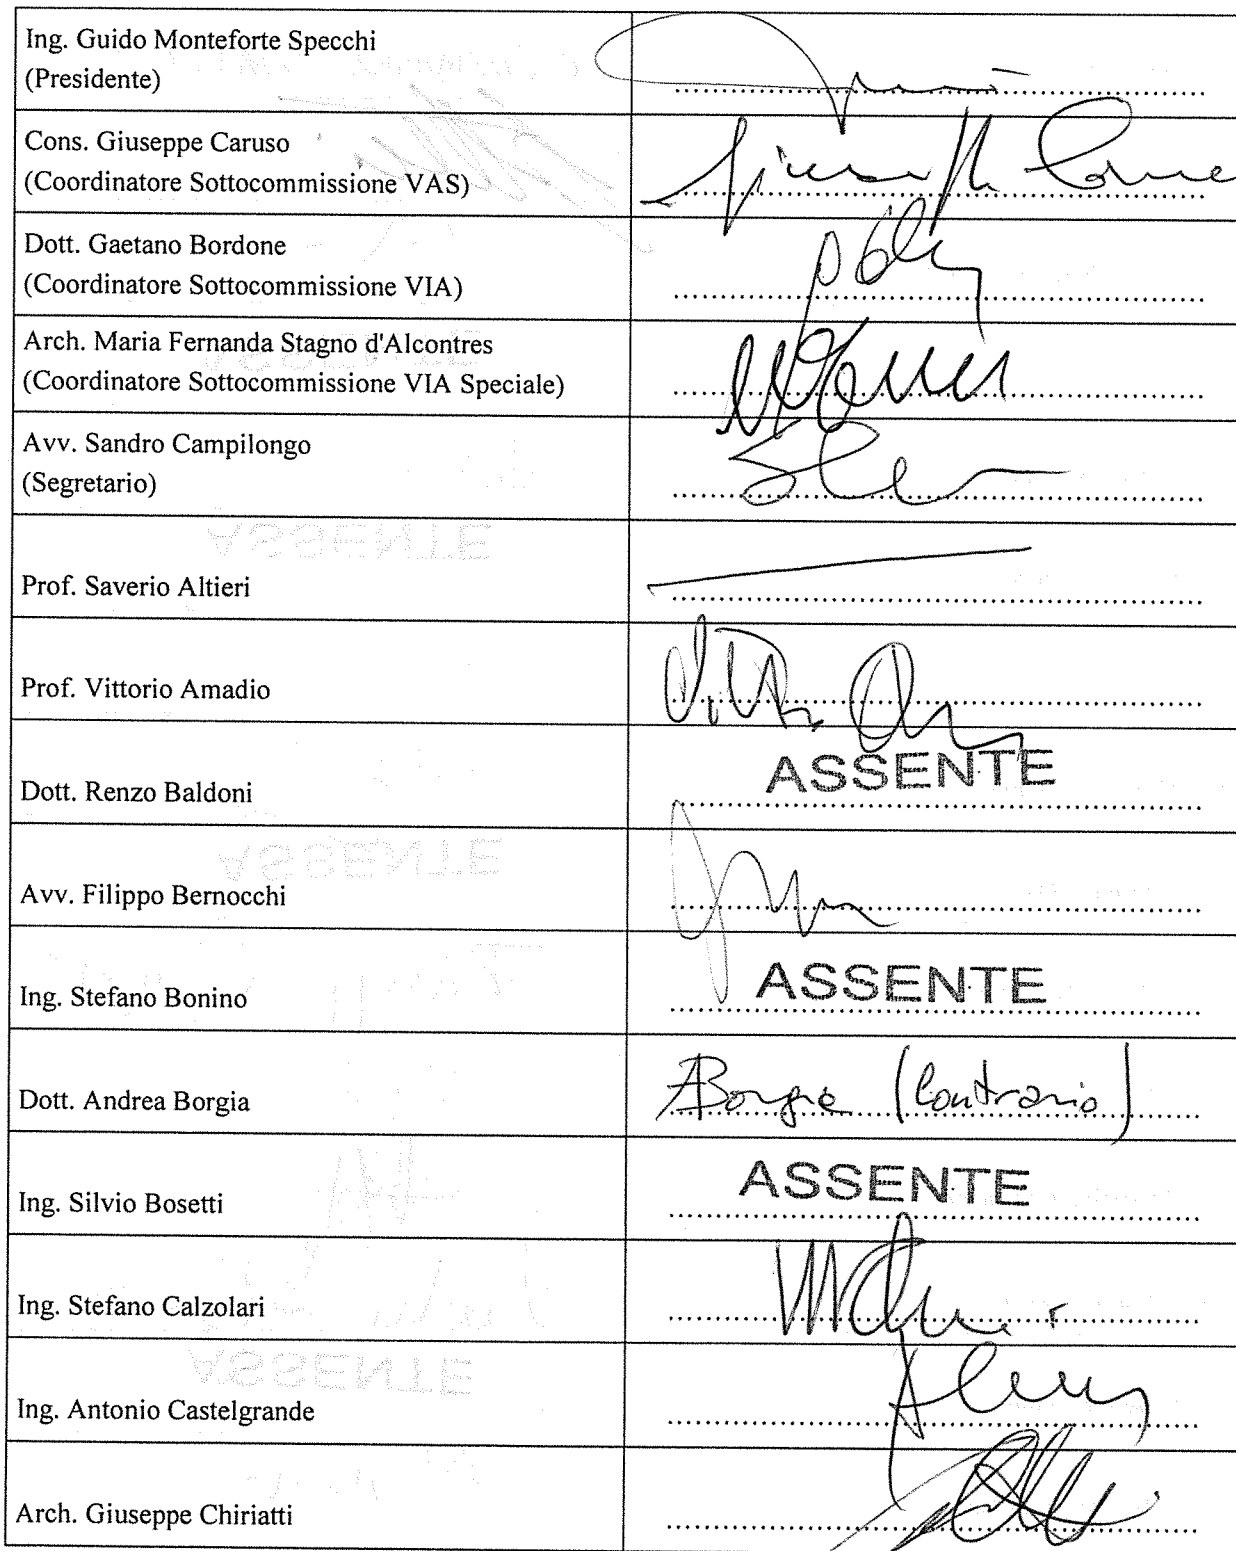 Ing. Guido Monteforte Specchi
(Presidente)
Cons. Giuseppe Caruso
(Coordinatore Sottocommissione VAS)
Giuseppe Caruso
Dott. Gaetano Bordone
(Coordinatore Sottocommissione VIA)
Arch. Maria Fernanda Stagno d'Alcontres
(Coordinatore Sottocommissione VIA Speciale)
Avv. Sandro Campilongo
(Segretario)
Prof. Saverio Altieri
Prof. Vittorio Amadio
Dott. Renzo Baldoni
ASSENTE
Avv. Filippo Bernocchi
Ing. Stefano Bonino
ASSENTE
Dott. Andrea Borgia
ABorgia (Contrario)
Ing. Silvio Bosetti
ASSENTE
Ing. Stefano Calzolari
Ing. Antonio Castelgrande
Arch. Giuseppe Chiriatti